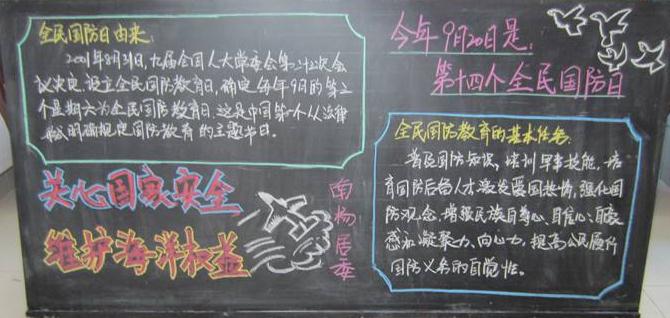 全民国防日由来:
2001年8月31日,九届全国人大常委会第二十次会
议决定,设立全民国防教育日,确定每年9月的第三
个星期六为全民国防教育日,这是中国第一个以法律
明确规定国防教育的主题节日。
关心国家安全
维护海洋权益
南杨居委
今年9月20日是:
第十四个全民国防日
全民国防教育的基本任务:
普及国防知识,培训军事技能,培
育国防后备人才,激发爱国热情,强化国
防观念,增强民族自尊心、自信心、自豪
感和凝聚力、向心力,提高公民履行
国防义务的自觉性。